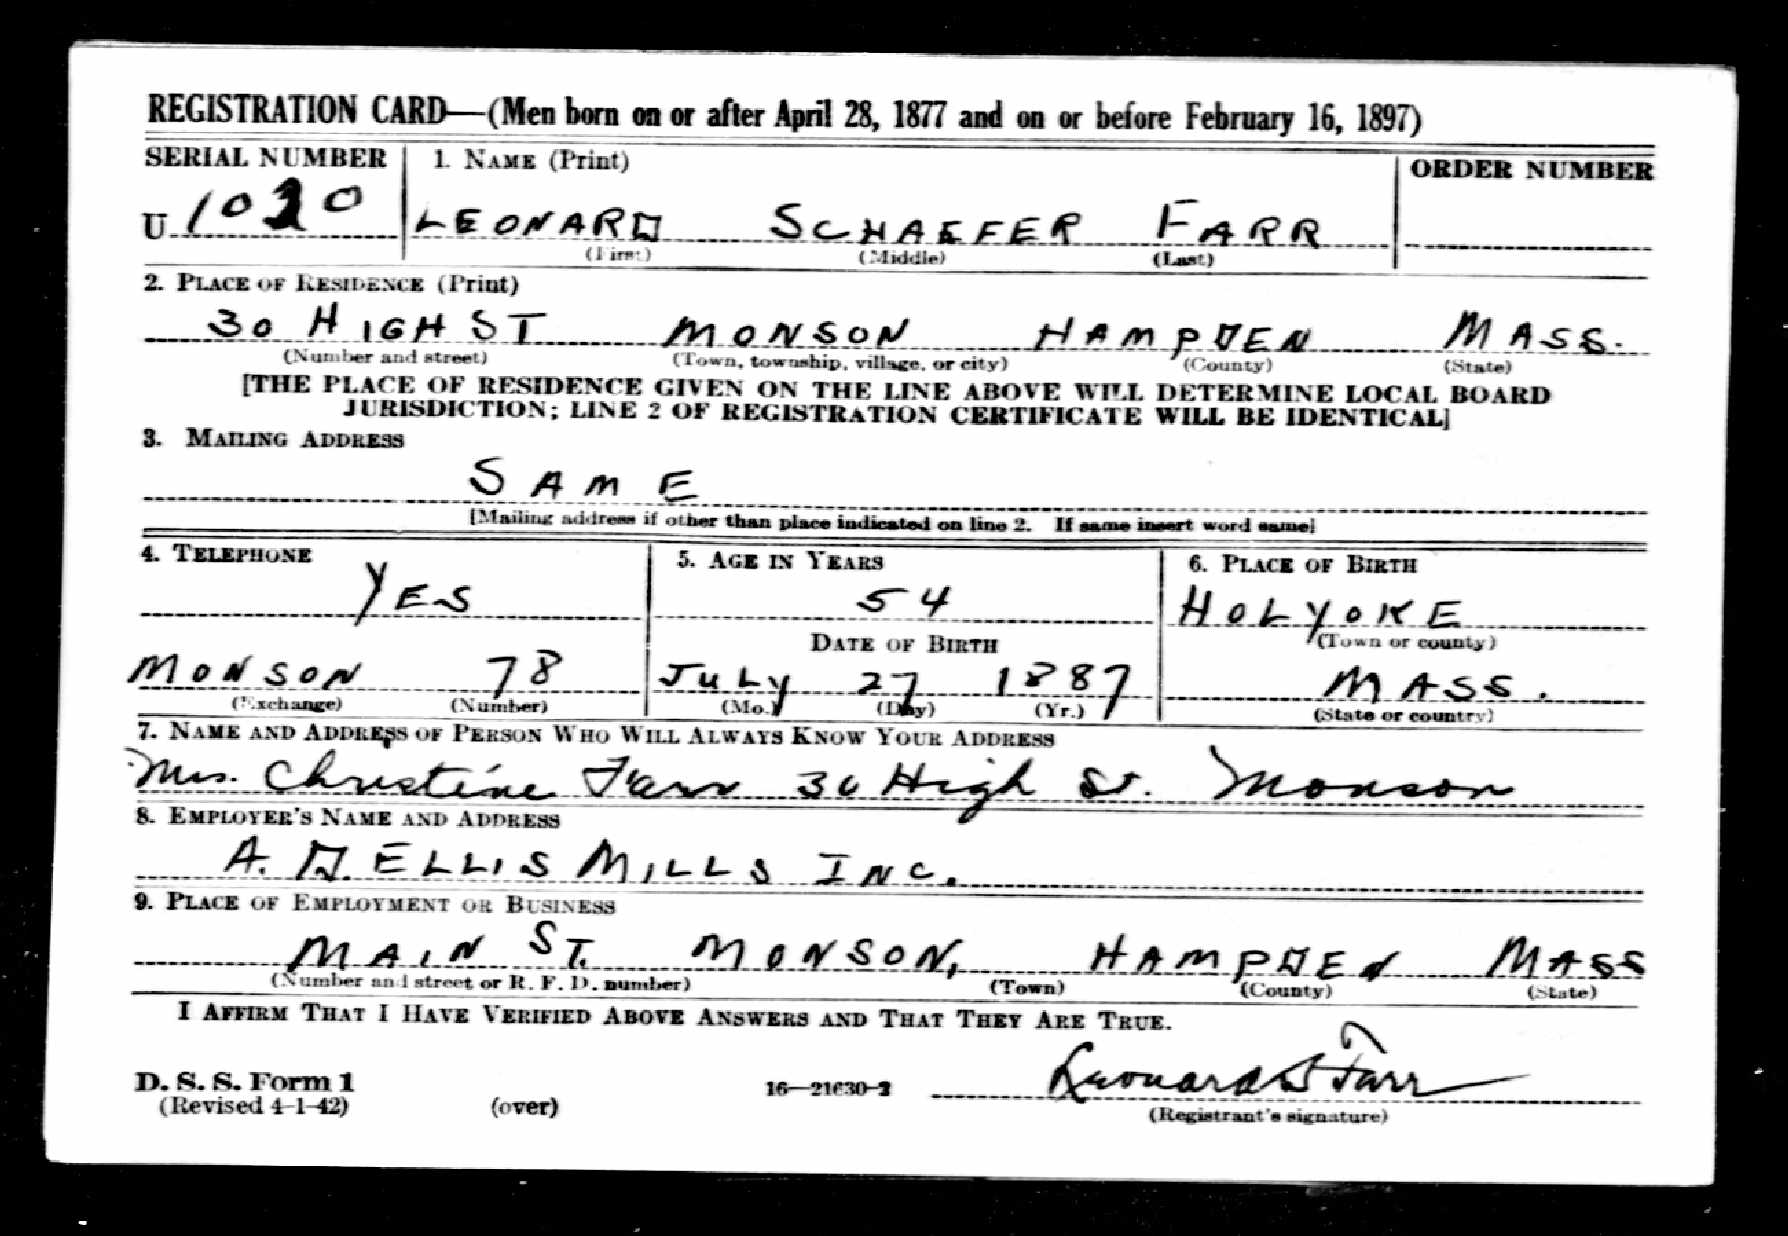 REGISTRATION CARD—(Men born on or after April 28, 1877 and on or before February 16, 1897)
SERIAL NUMBER 1. NAME (Print) ORDER NUMBER
U LEONARD SCHAEFER FARR
(First) (Middle) (Last)
2. PLACE OF RESIDENCE (Print)
30 HIGH ST MONSON HAMPDEN MASS.
(Number and street) (Town, township, village, or city) (County) (State)
[THE PLACE OF RESIDENCE GIVEN ON THE LINE ABOVE WILL DETERMINE LOCAL BOARD
JURISDICTION; LINE 2 OF REGISTRATION CERTIFICATE WILL BE IDENTICAL]
3. MAILING ADDRESS
SAME
[Mailing address if other than place indicated on line 2. If same insert word same]
4. TELEPHONE 5. AGE IN YEARS 6. PLACE OF BIRTH
YES 54 HOLYOKE
DATE OF BIRTH (Town or county)
MONSON 78 JULY 27 1887 MASS.
(Exchange) (Number) (Mo.) (Day) (Yr.) (State or country)
7. NAME AND ADDRESS OF PERSON WHO WILL ALWAYS KNOW YOUR ADDRESS
Mrs. Christine Farr 30 High St. Monson
8. EMPLOYER'S NAME AND ADDRESS
A. D. ELLIS MILLS INC.
9. PLACE OF EMPLOYMENT OR BUSINESS
MAIN ST. MONSON, HAMPDEN MASS
(Number and street or R. F. D. number) (Town) (County) (State)
I AFFIRM THAT I HAVE VERIFIED ABOVE ANSWERS AND THAT THEY ARE TRUE.
D. S. S. Form 1 16—21630-2 Leonard S Farr
(Revised 4-1-42) (over) (Registrant's signature)